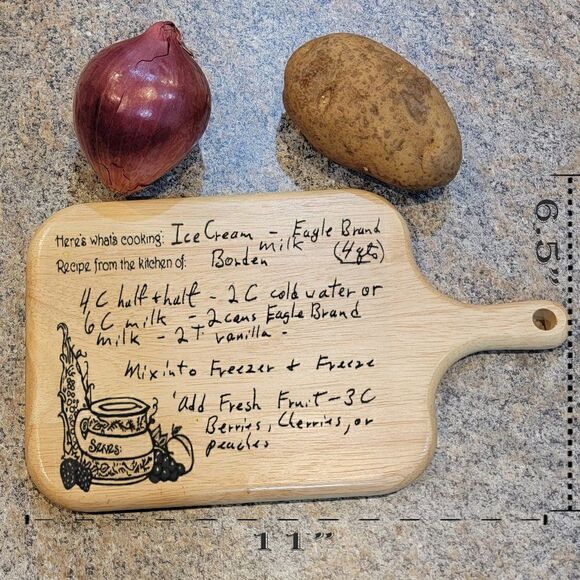 Here's what's cooking: Ice Cream - Eagle Brand
milk (4 qts)
Recipe from the kitchen of: Borden
4 C half + half - 2 C cold water or
6 C milk - 2 cans Eagle Brand
milk - 2 T vanilla -
Mix into Freezer + Freeze
'add Fresh Fruit - 3 C
Berries, Cherries, or
peaches
Serves:
6.5"
11"